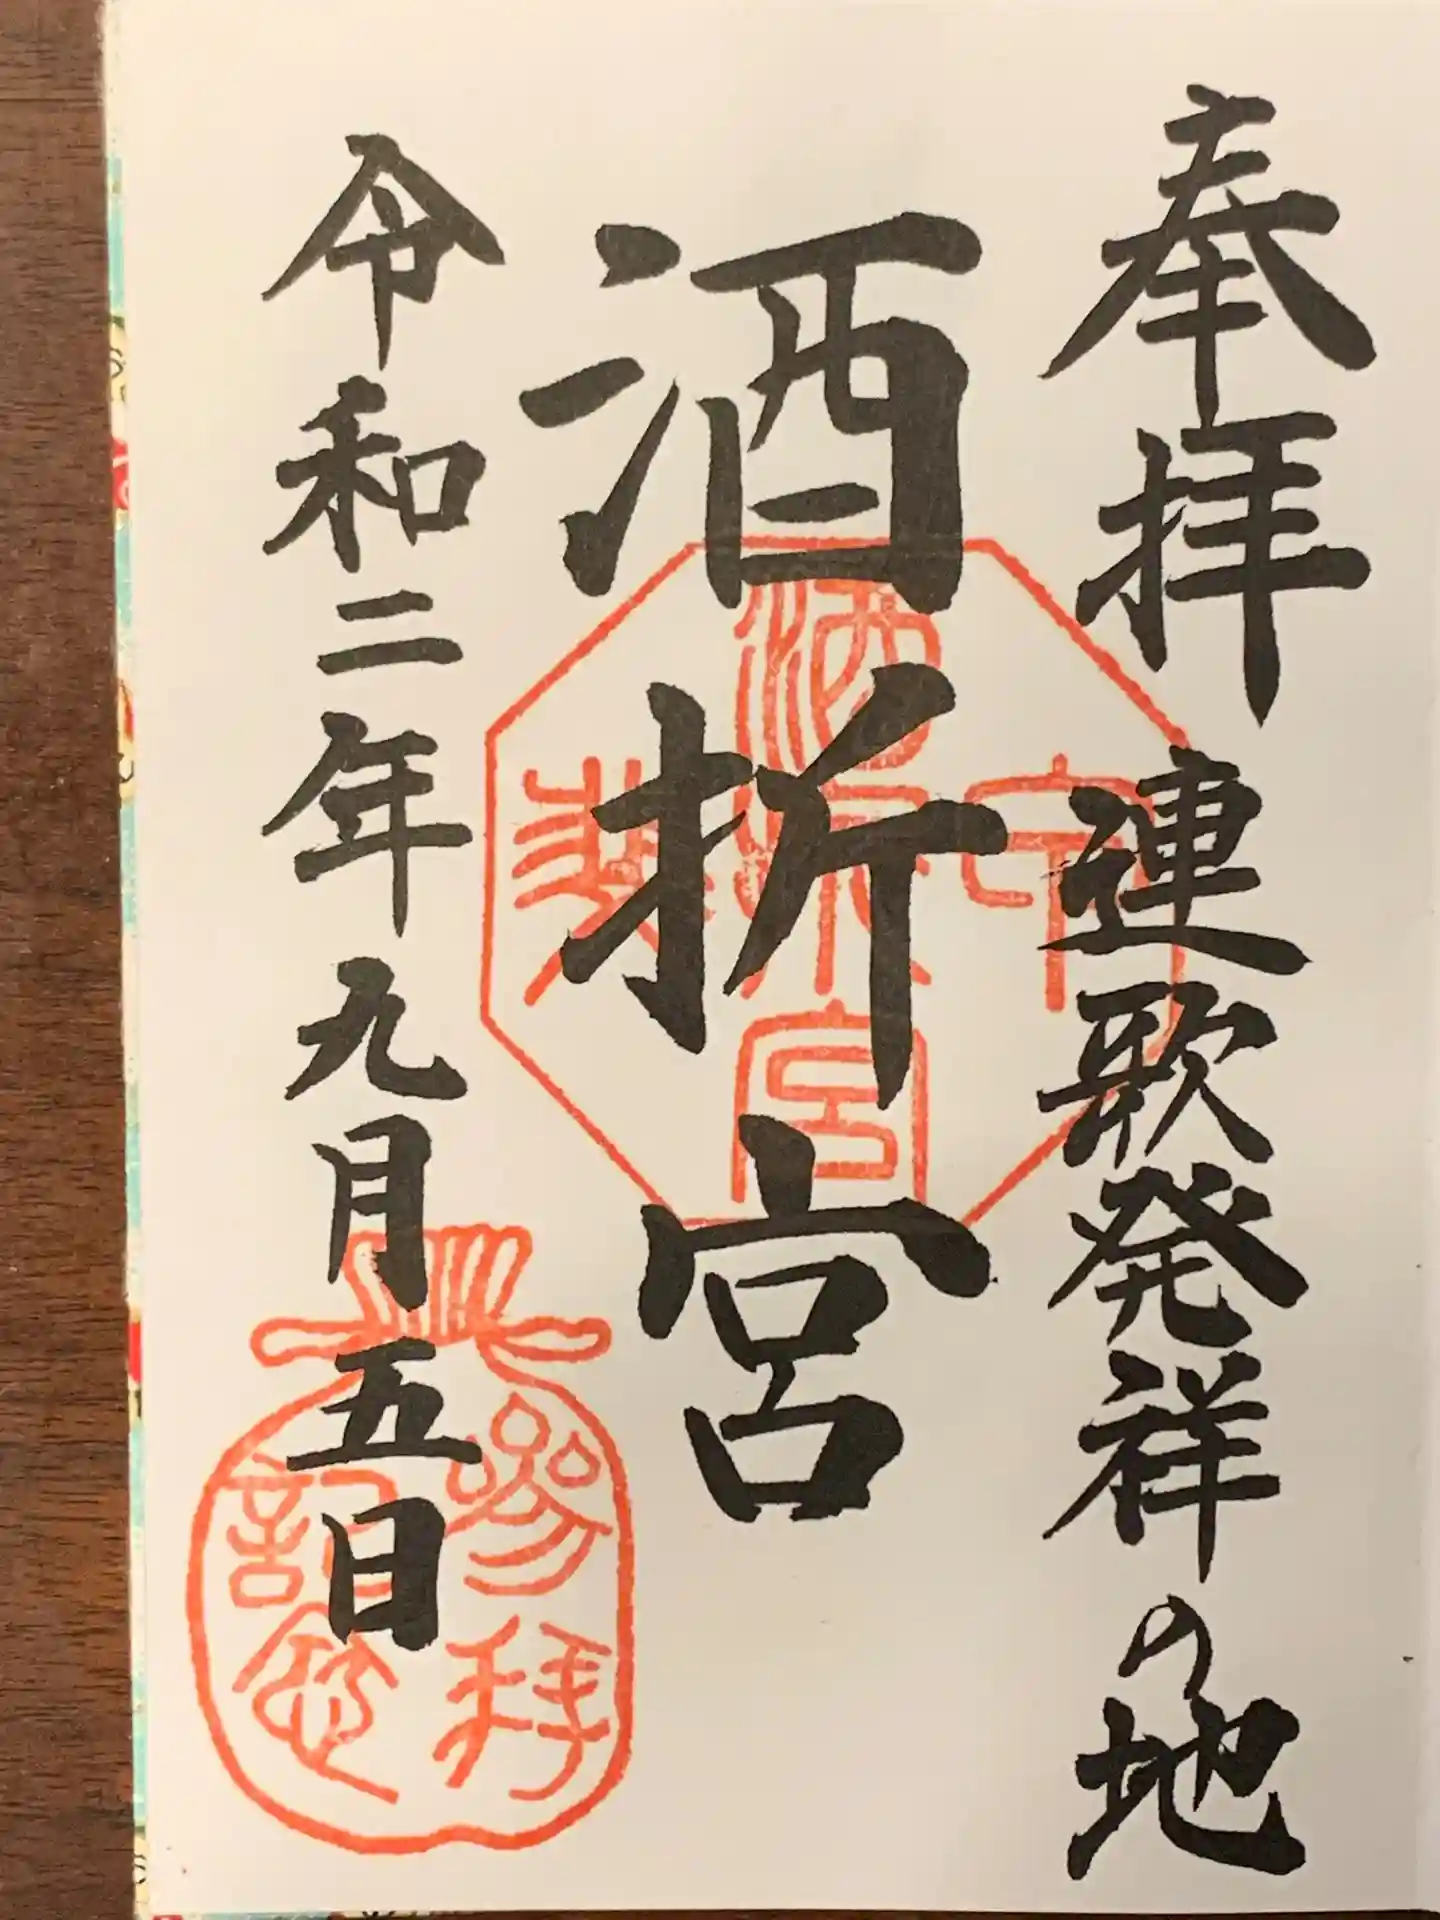 奉拝 連歌発祥の地
酒折宮
令和二年九月五日
酒折宮
参拝
記念